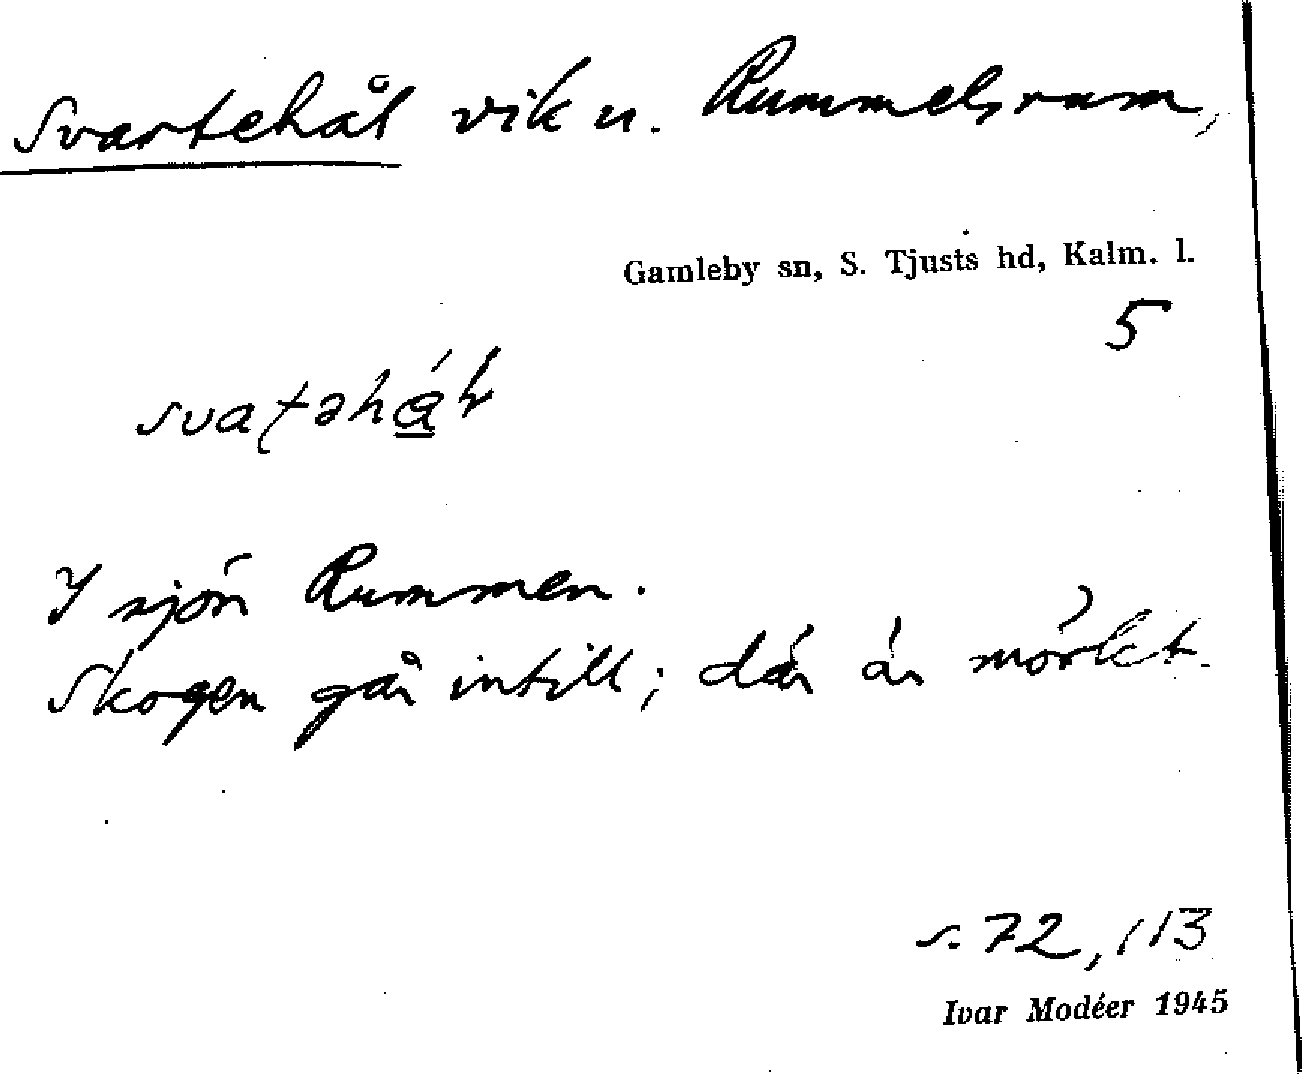 Svartehål vik u. Rummelsrum,
Gamleby sn, S. Tjusts hd, Kalm. l.
5
I sjön Rummen.
Skogen går intill; där är mörkt.
s. 72, 113
Ivar Modéer 1945